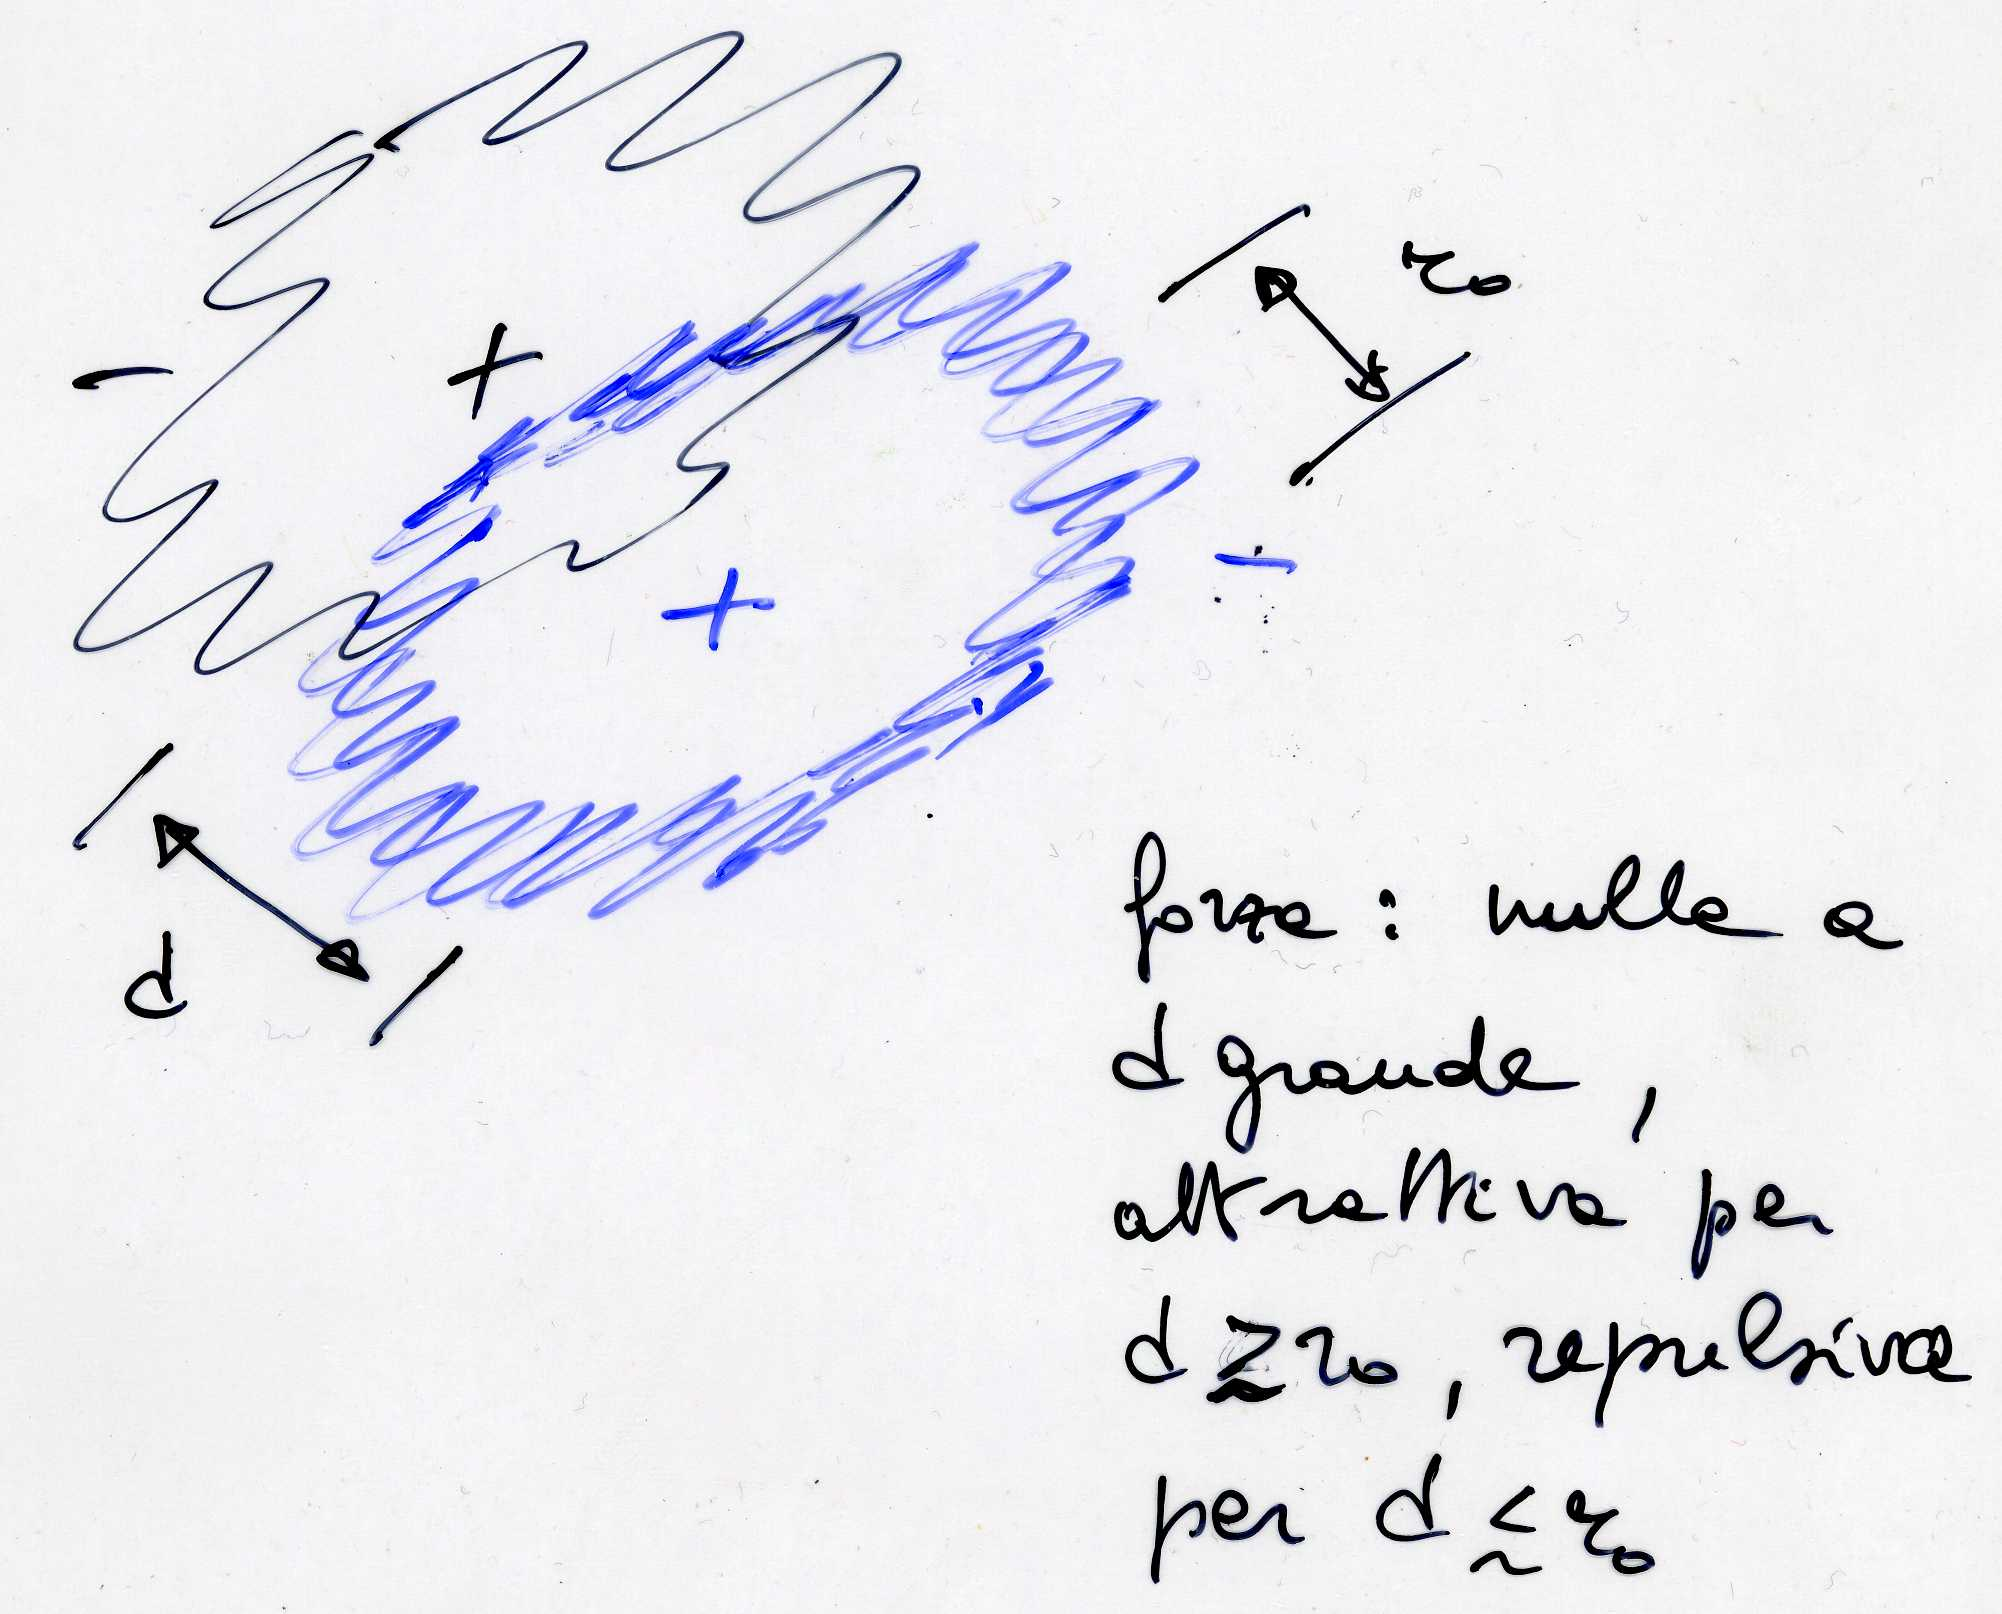 r₀
- +
+ -
d
forza: nulla a
d grande,
attrattiva per
d ≳ r₀, repulsiva
per d ≲ r₀